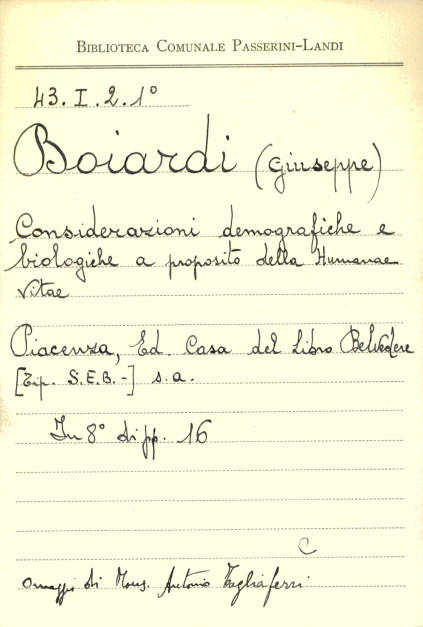 BIBLIOTECA COMUNALE PASSERINI-LANDI
43. I. 2. 1°
Boiardi (Giuseppe)
Considerazioni demografiche e
biologiche a proposito della Humanae
Vitae
Piacenza, Ed. Casa del Libro Belvedere
[Tip. S.E.B.-] s.a.
In 8° di pp. 16
C
Omaggio di Mons. Antonio Tagliaferri